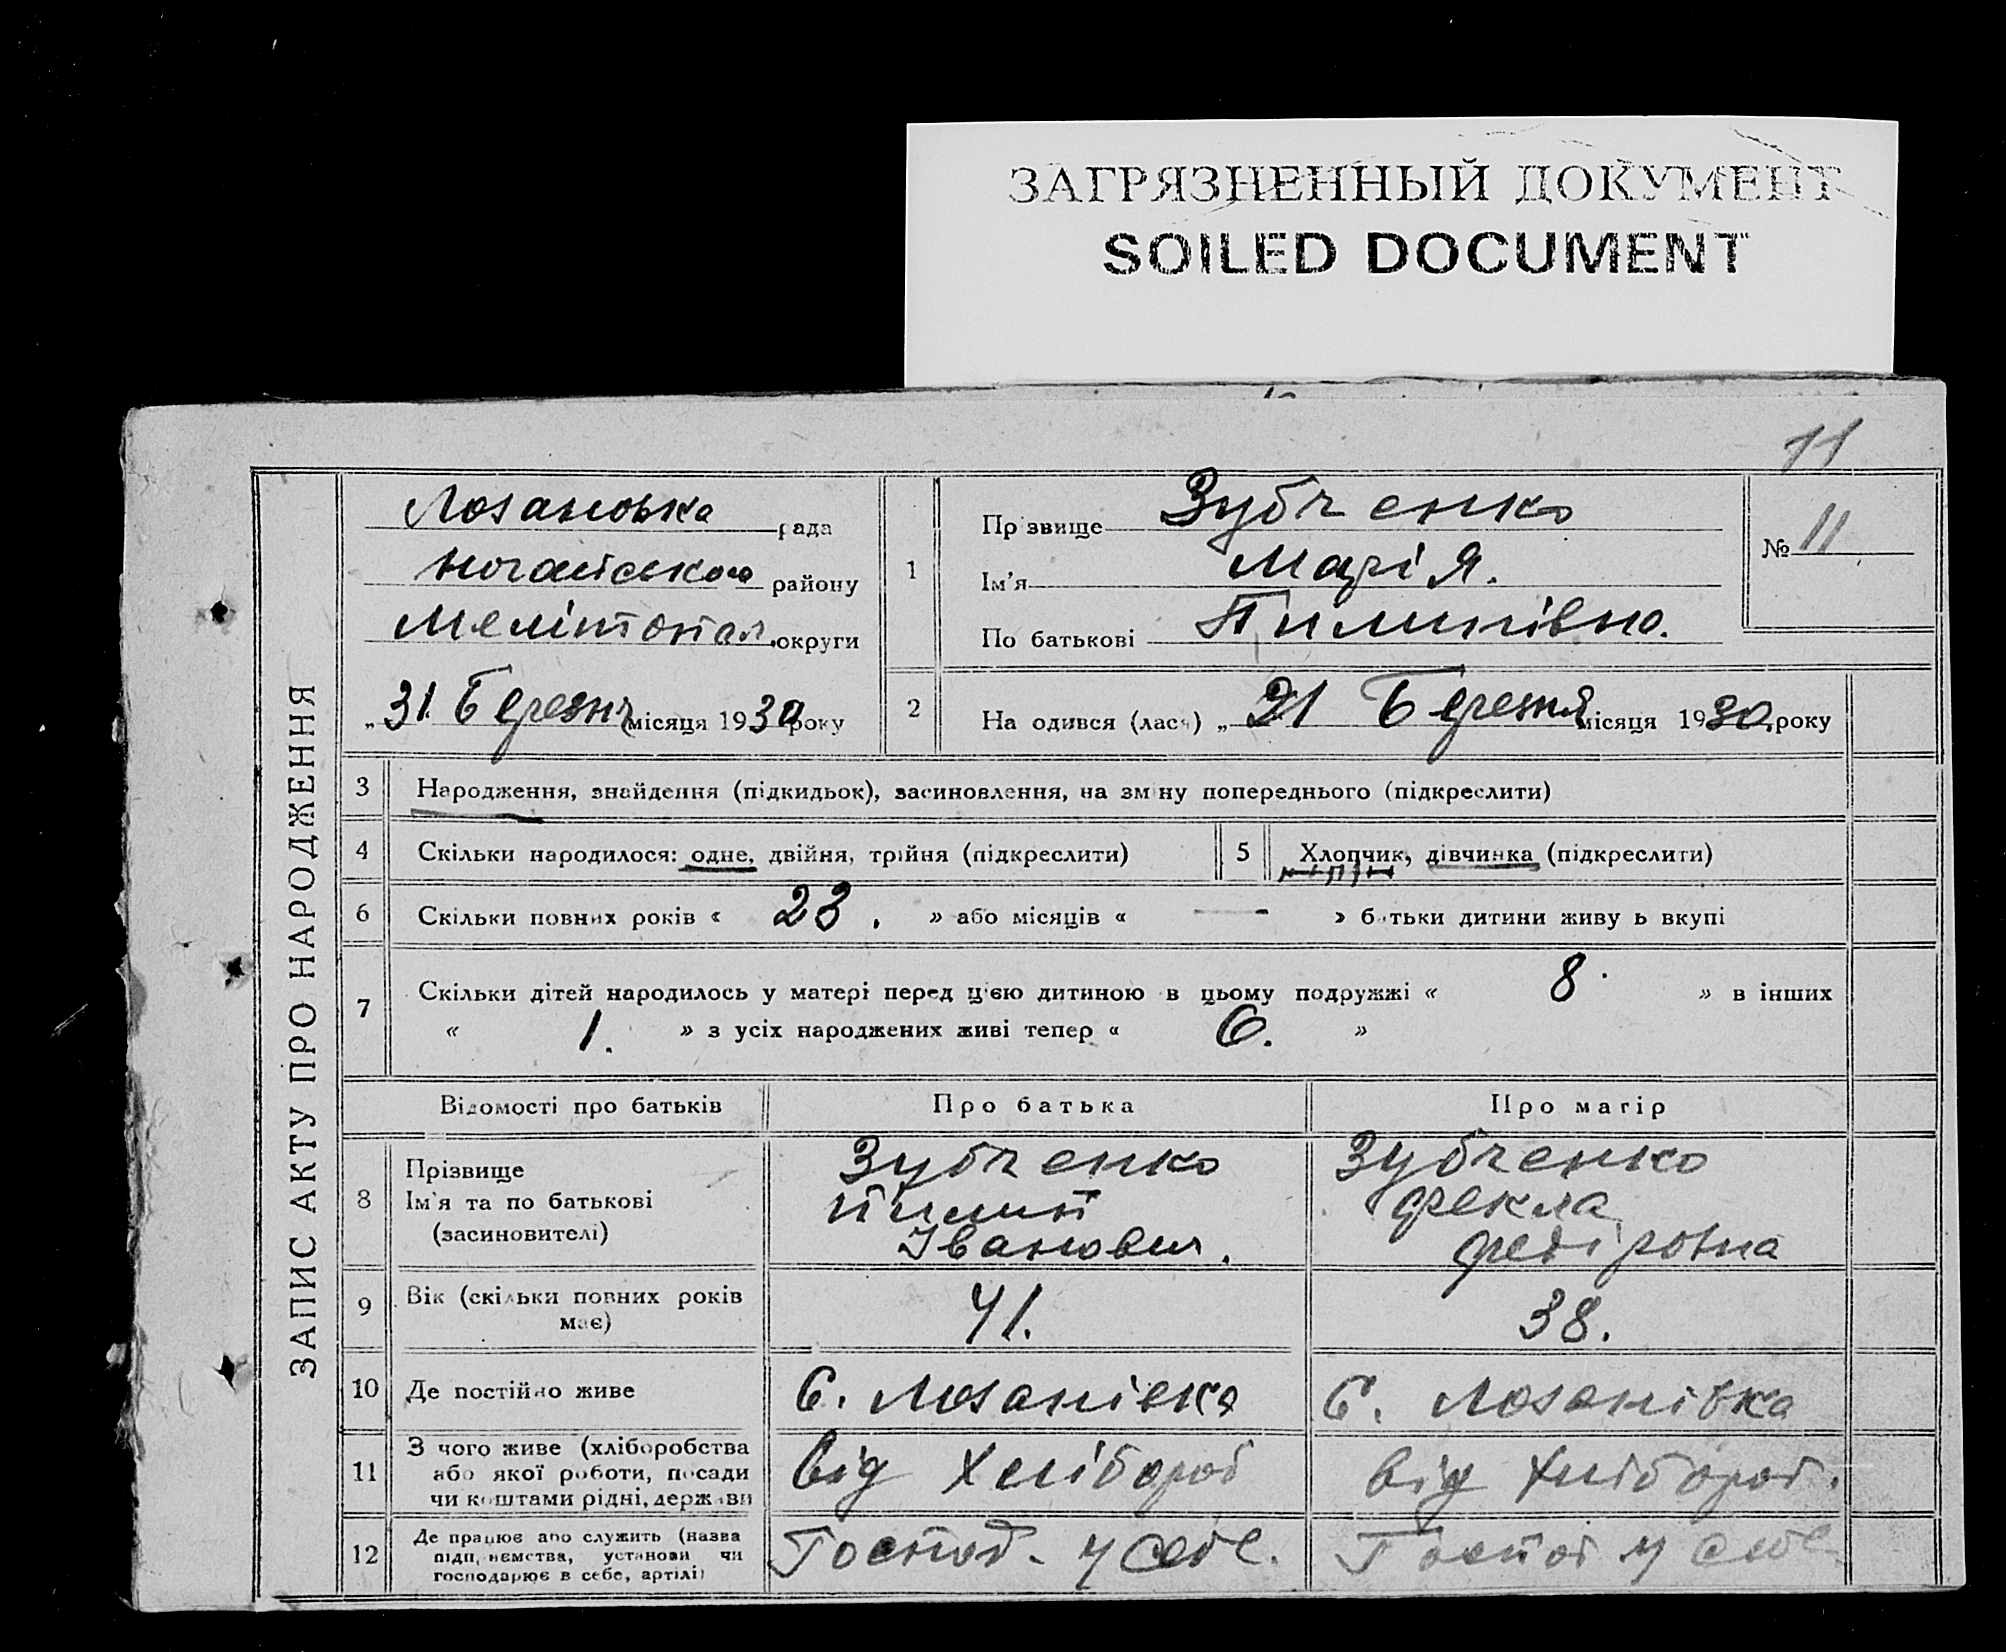 ЗАГРЯЗНЕННЫЙ ДОКУМЕНТ
SOILED DOCUMENT
11
ЗАПИС АКТУ ПРО НАРОДЖЕННЯ
Лозановька рада
Ногайського району
Мелітопал. округи
„31 Березня місяця 1930 року
1
Прізвище Зубченко
Ім'я Марія.
По батькові Пилипівна.
№ 11
2
На одився (лася) „21 Березня місяця 1930. року
3 Народження, знайдення (підкидьок), засиновлення, на зміну попереднього (підкреслити)
4 Скільки народилося: одне, двійня, трійня (підкреслити) 5 Хлопчик, дівчинка (підкреслити)
6 Скільки повних років « 23. » або місяців « — » батьки дитини живуть вкупі
7 Скільки дітей народилось у матері перед цією дитиною в цьому подружжі « 8 » в інших
« 1. » з усіх народжених живі тепер « 6. »
Відомості про батьків Про батька Про матір
8 Прізвище
Ім'я та по батькові
(засиновителі)
Зубченко
Пилип
Іванович.
Зубченко
Фекла
Федіровна
9 Вік (скільки повних років
має)
41.
38.
10 Де постійно живе С. Лозанівка С. Лозанівка
11 З чого живе (хліборобства
або якої роботи, посади
чи коштами рідні, держави
від Хлібороб
від Хлібороб.
12 Де працює або служить (назва
підприємства, установи чи
господарює в себе, артілі)
Господ. у себе.
Господ у себе